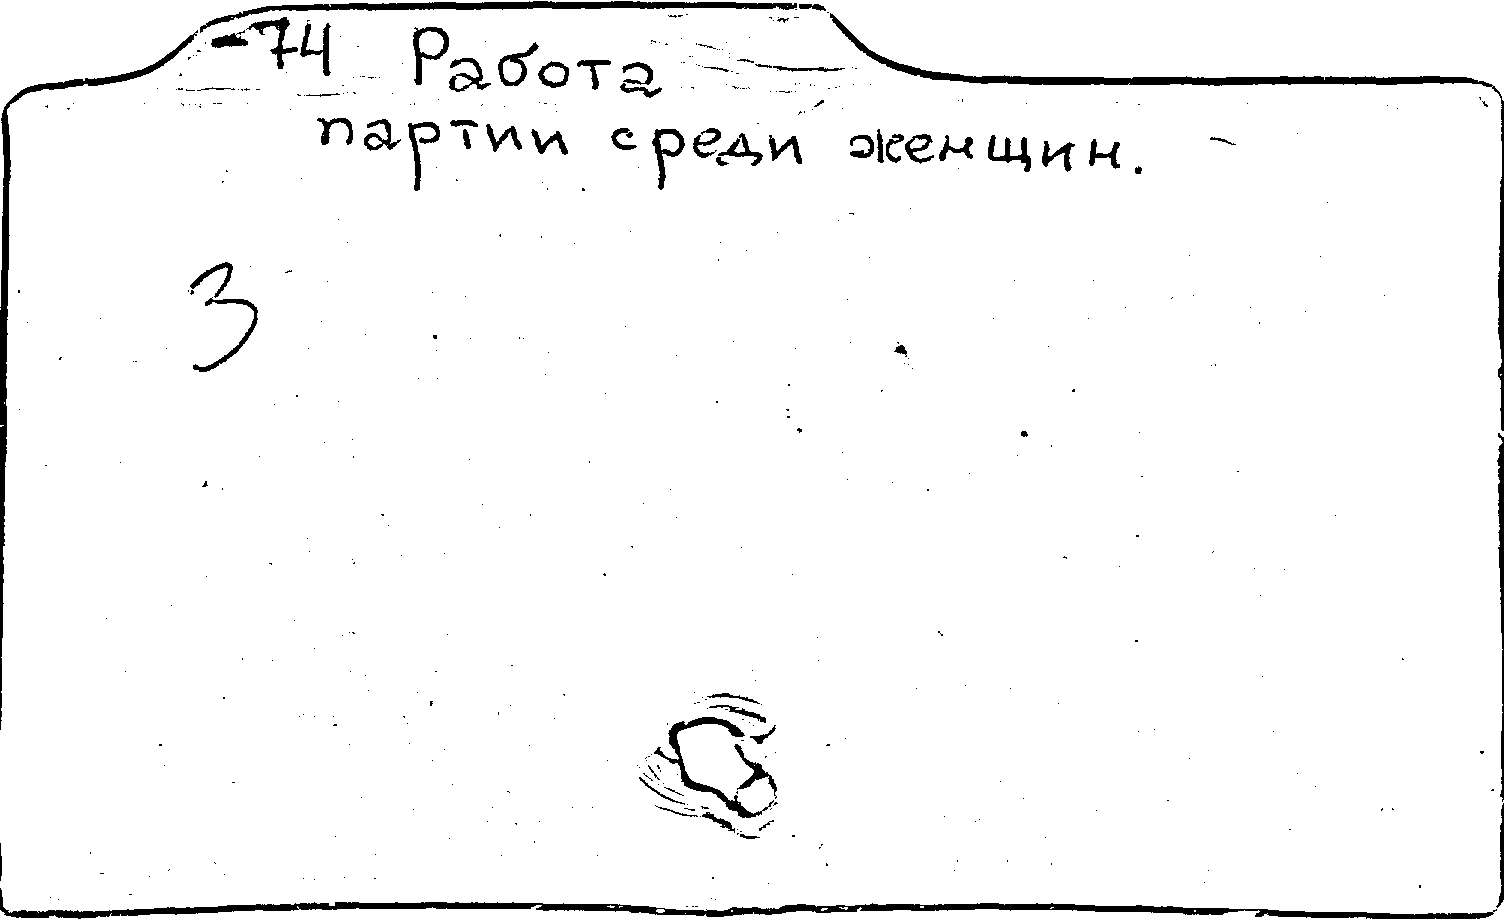 -74 Работа
партии среди женщин.
3